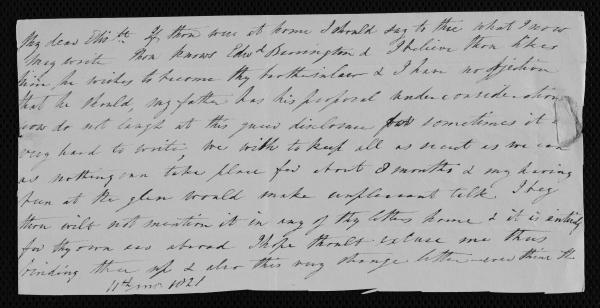 My dear Elizth. If thou were at home I should say to thee what I now
may write Thou knows Edwd Barrington & I believe thou likes
him, he wishes to become thy brother in law & I have no objection
that he should, my father has his proposal under consideration
now do not laugh at this queer disclosure for sometimes it is
very hard to write, we wish to keep all as secret as we can
as nothing can take place for about 8 months & my having
been at the glen would make unpleasant talk. I beg
thou wilt not mention it in any of thy letters home & it is entirely
for thy own ear abroad I hope thoult excuse me thus
binding thee up & also this very strange letter ever thine
11th mo 1821